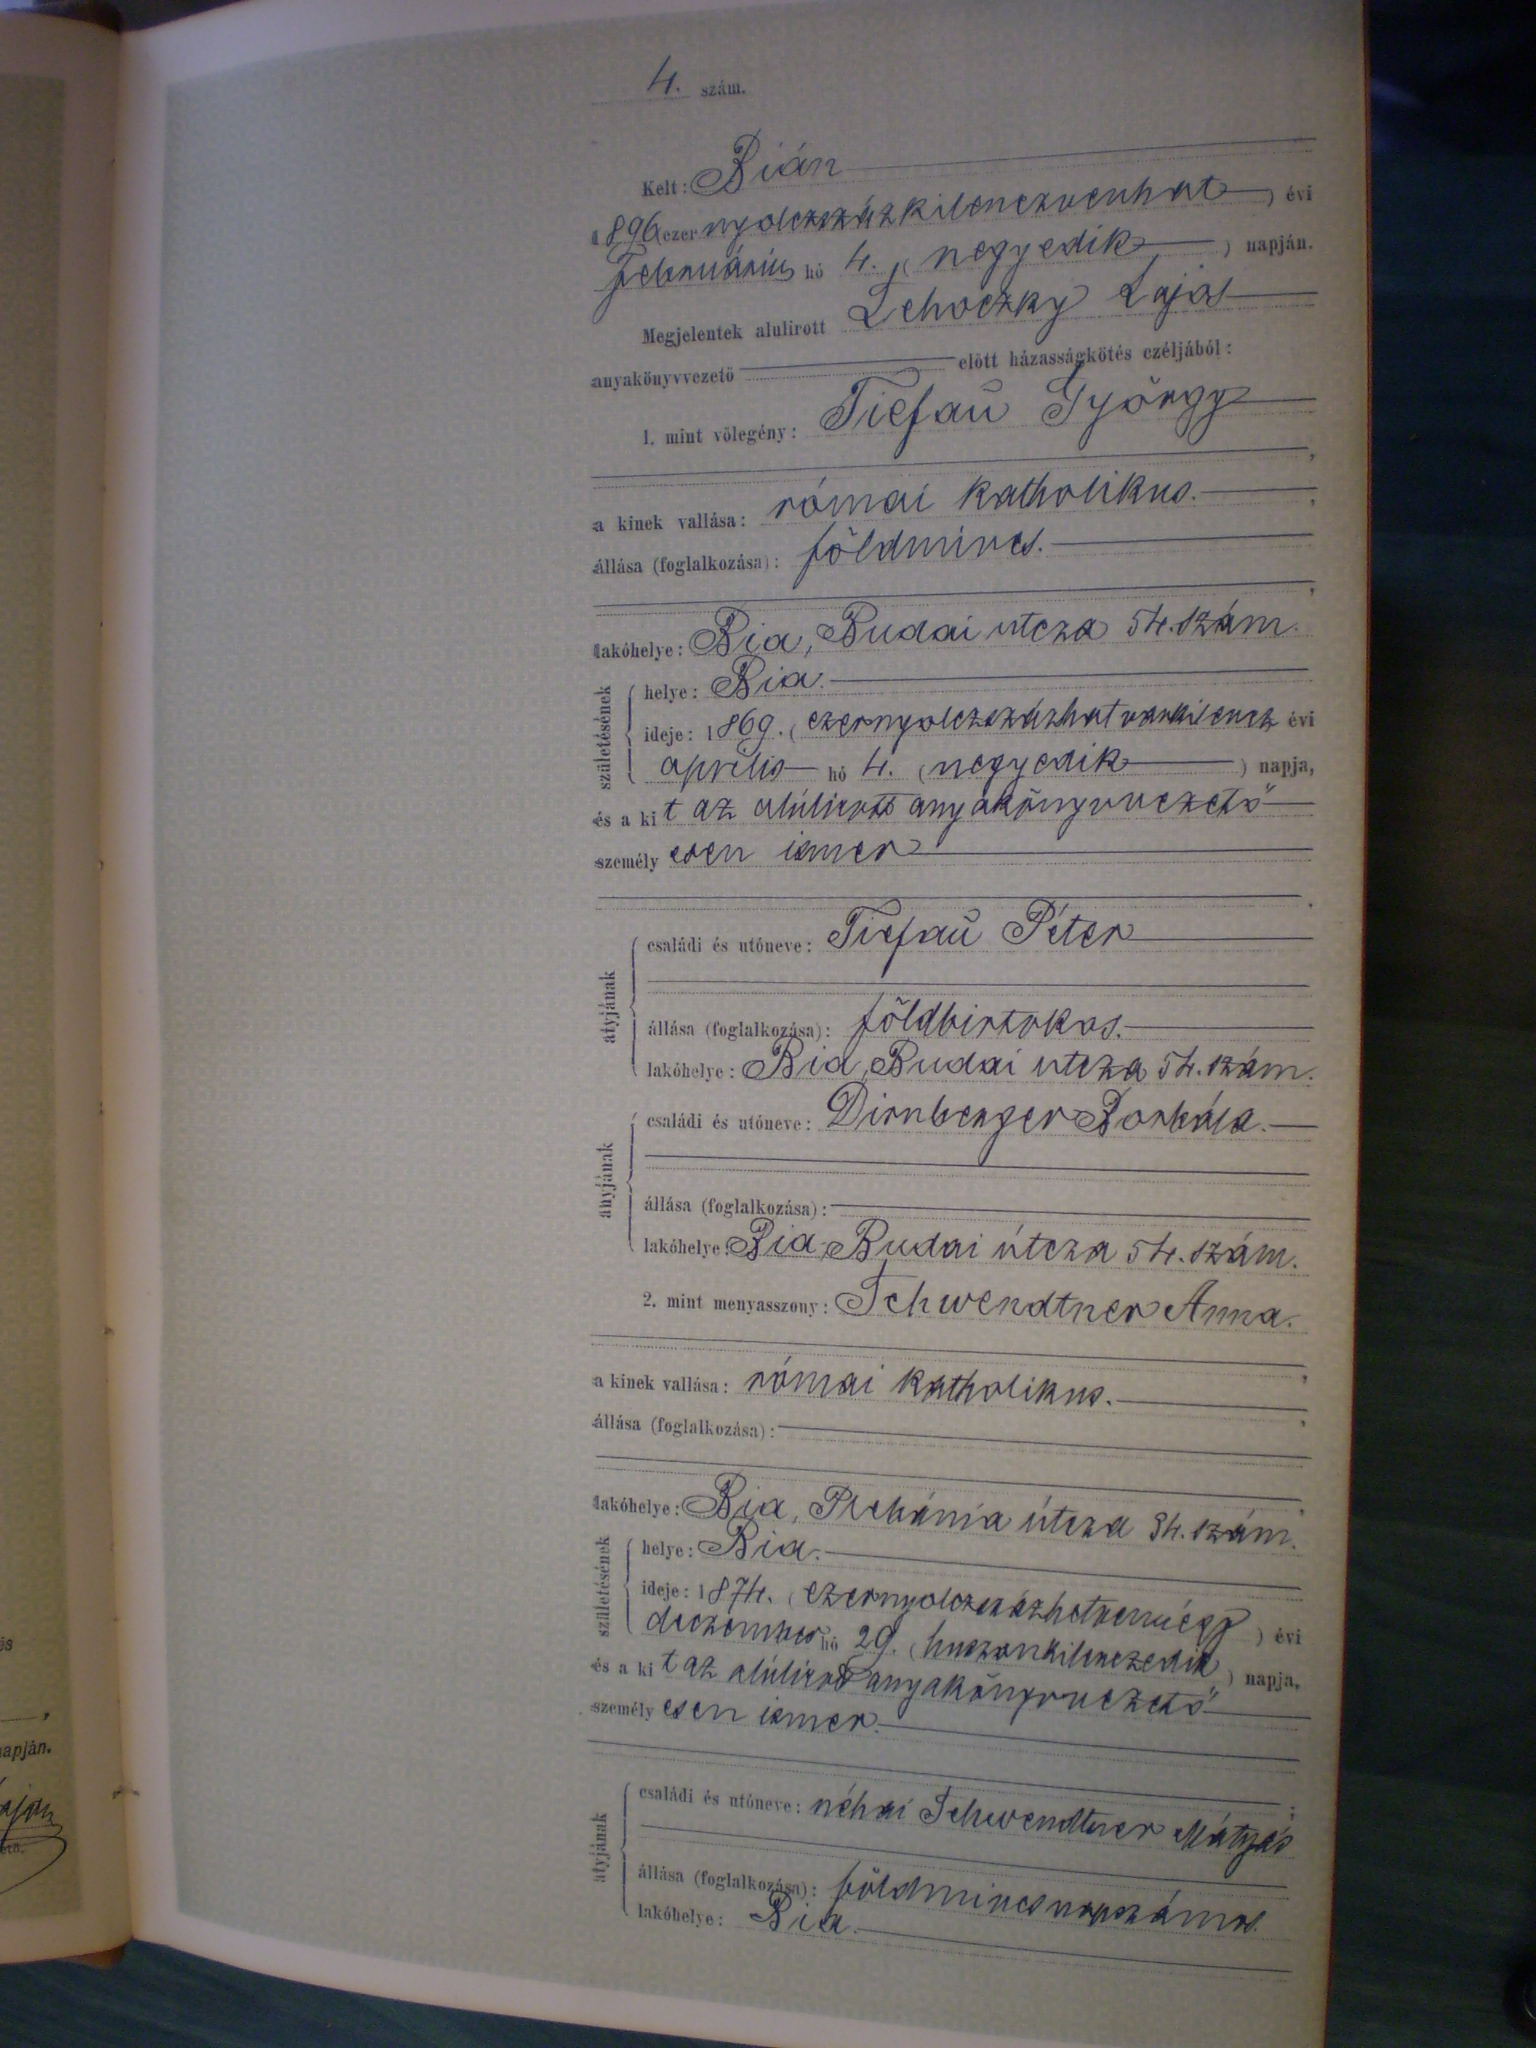 4. szám.
Kelt: Bián
1896 (ezer nyolczszázkilenczvenhat) évi
Február̋ius hó 4. (negyedik) napján.
Megjelentek alulirott Lehoczky Lajos
anyakönyvvezető előtt házasságkötés czéljából:
1. mint vőlegény: Tiefaŭ György
a kinek vallása: római katholikus.
állása (foglalkozása): földmives.
lakóhelye: Bia, Budai utcza 54. szám.
születésének
helye: Bia.
ideje: 1869. (ezernyolczszázhatvankilencz évi
április hó 4. (negyedik) napja,
és a kit az alúlirott anyakönyvvezető
személyesen ismer
atyjának
családi és utóneve: Tiefaŭ Péter
állása (foglalkozása): földbirtokos.
lakóhelye: Bia, Budai utcza 54. szám.
anyjának
családi és utóneve: Dirnberger Borbála.
állása (foglalkozása):
lakóhelye: Bia, Budai útcza 54. szám.
2. mint menyasszony: Schwendtner Anna.
a kinek vallása: római katholikus.
állása (foglalkozása):
lakóhelye: Bia, Plebánia útcza 34. szám.
születésének
helye: Bia.
ideje: 1874. (ezernyolczszázhetvennégy) évi
deczember hó 29. (huszonkilenczedik) napja,
és a kit az alúlirott anyakönyvvezető
személyesen ismer.
atyjának
családi és utóneve: néhai Schwendtner Mátyás
állása (foglalkozása): földmives napszámos.
lakóhelye: Bia.
napján.